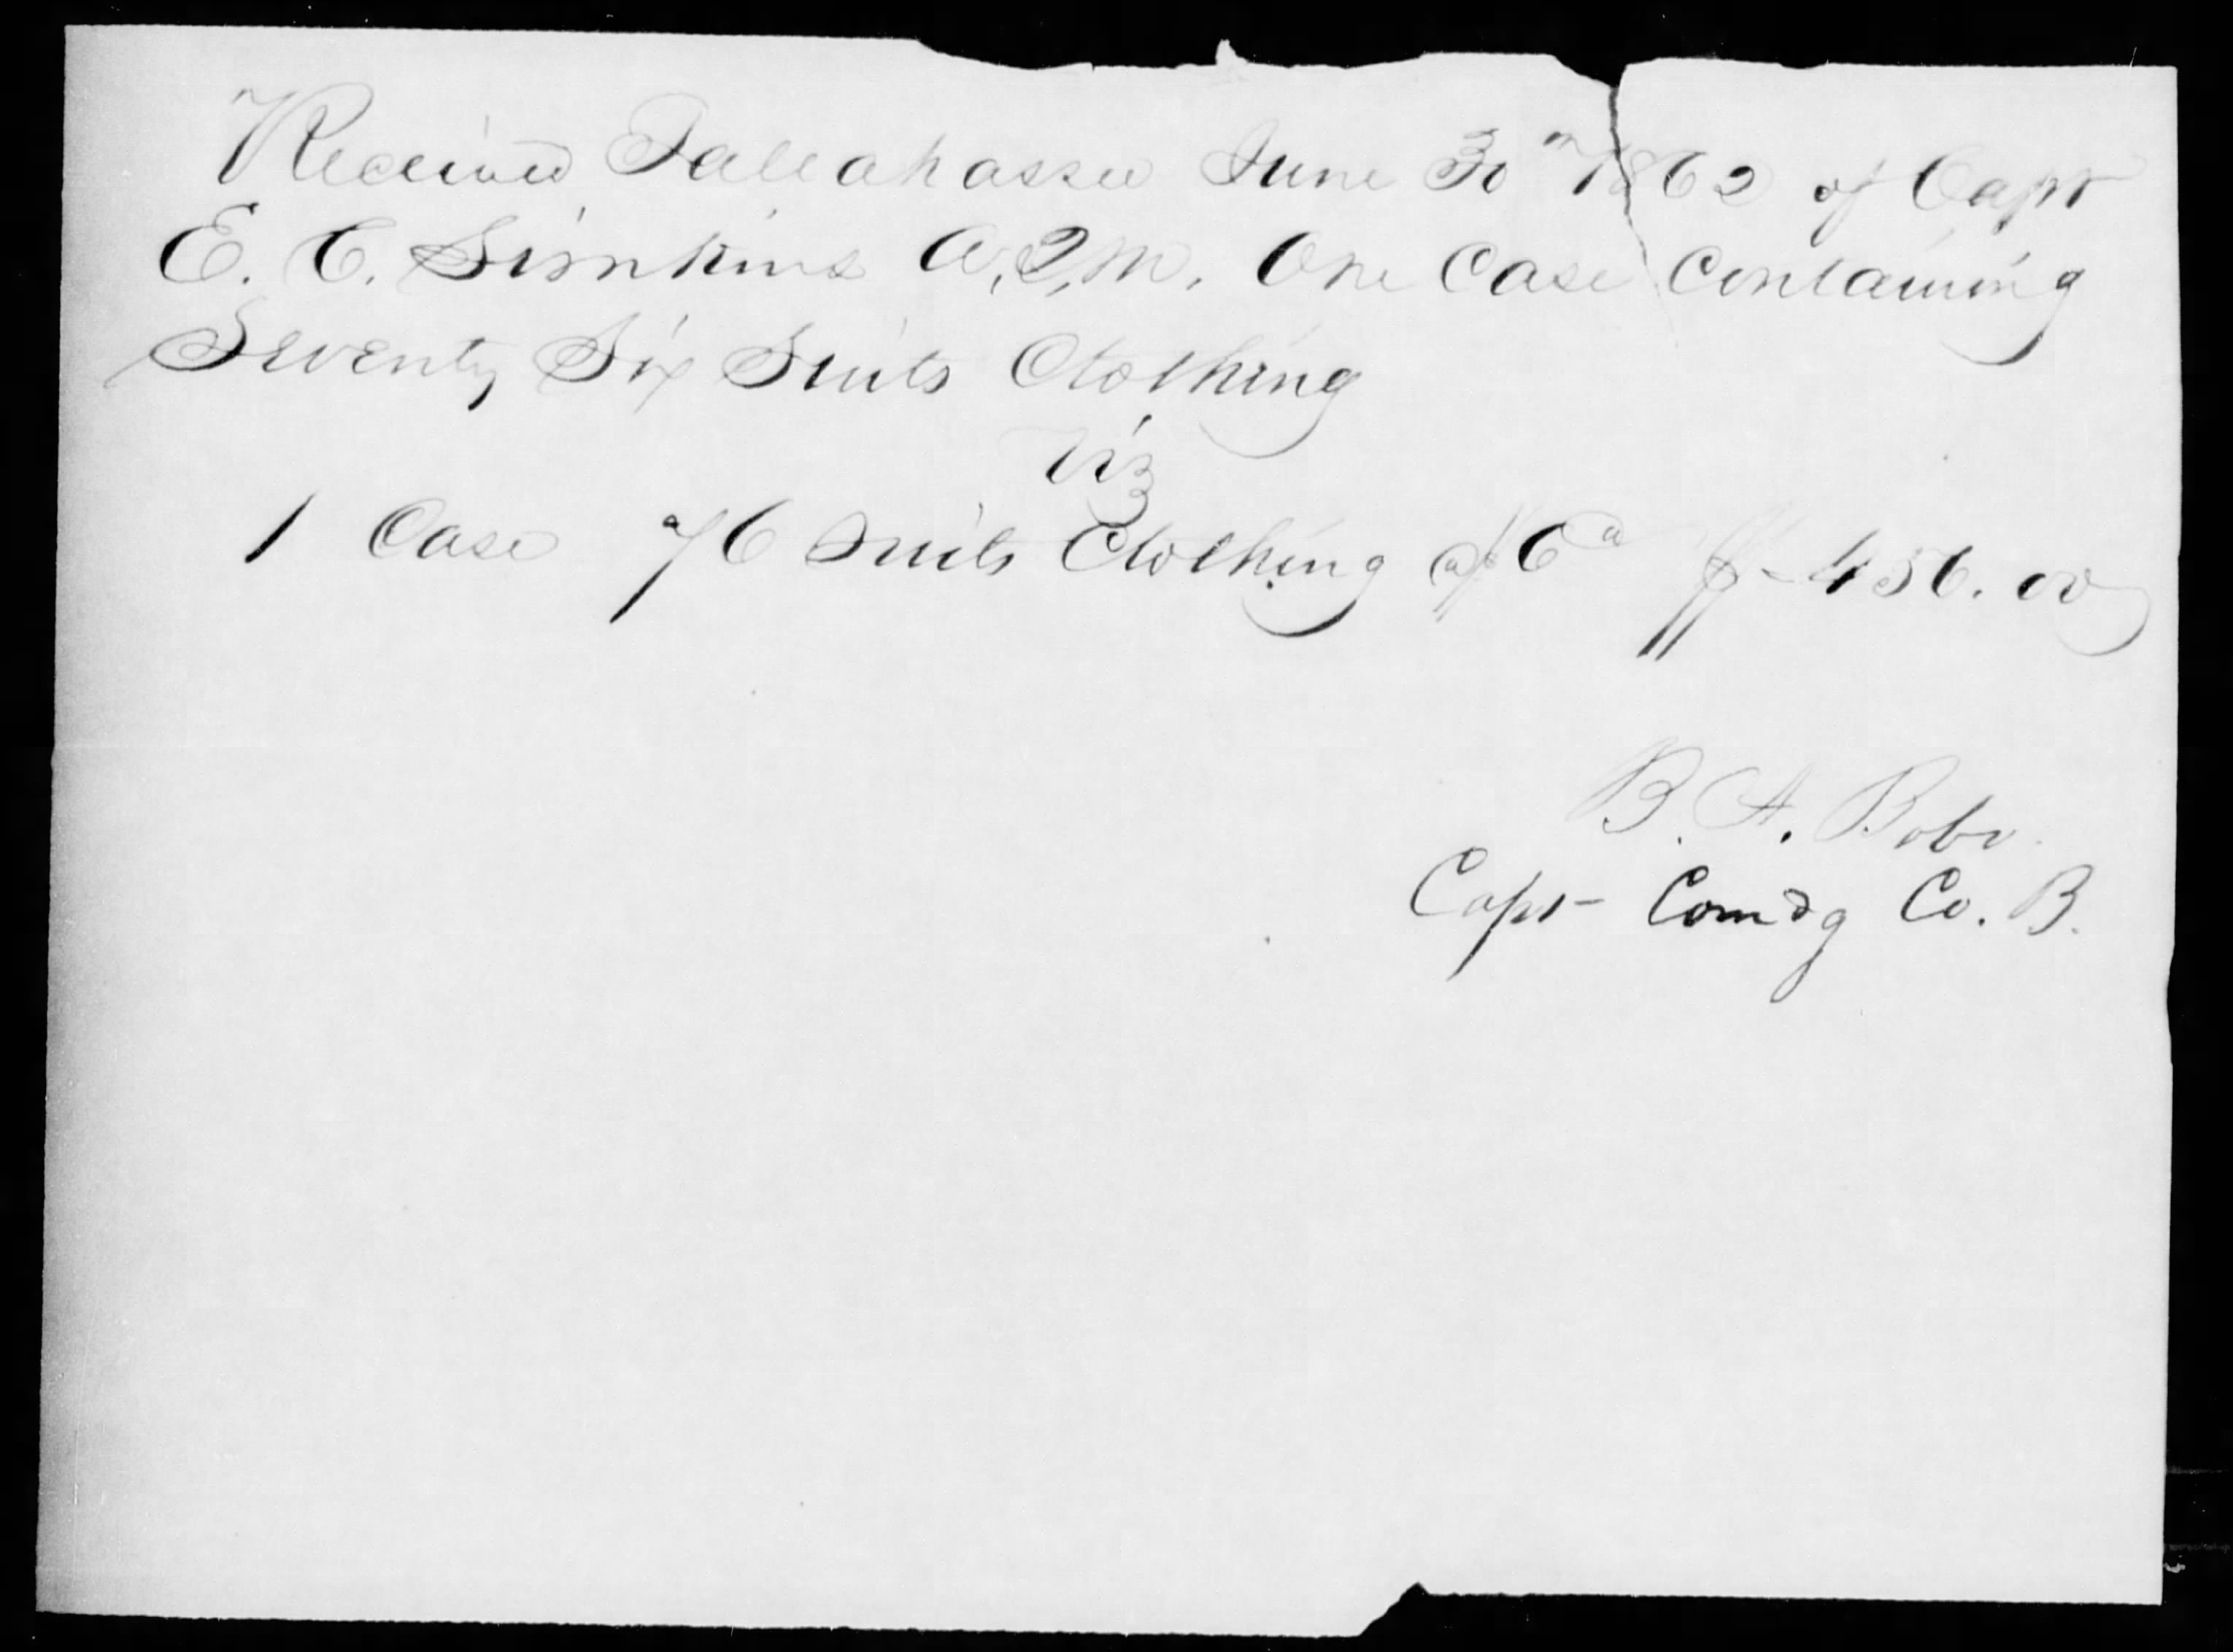 Received Tallahassee June 30th 1862 of Capt
E. C. Simkins A.Q.M. One Case Containing
Seventy Six Suits Clothing
Viz
1 Case 76 Suits Clothing @ $6 a $ - 456.00
B. A. Bobo.
Capt - Comdg Co. B.